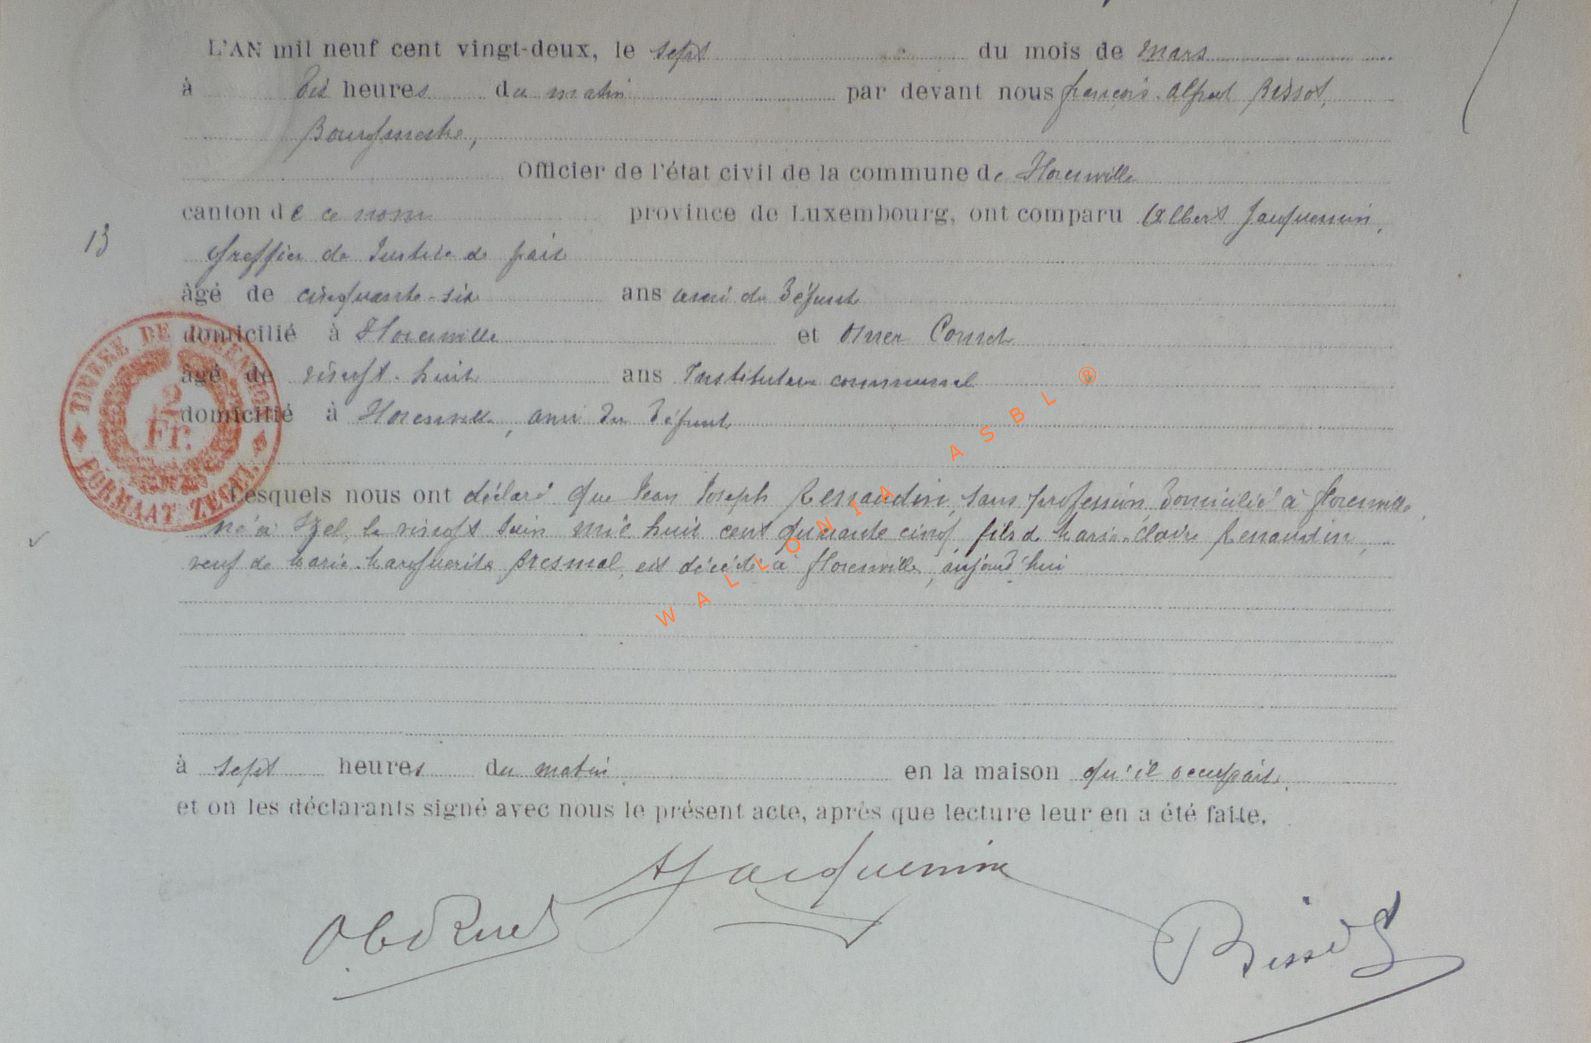 L'AN mil neuf cent vingt-deux, le sept du mois de mars
à dix heures du matin par devant nous françois-Alfred Bissot,
Bourgmestre,
Officier de l'état civil de la commune de Florenville
canton de ce nom province de Luxembourg, ont comparu Albert Jacquemin,
13
Greffier de Justice de paix
âgé de cinquante-six ans ami du défunt
domicilié à Florenville et Omer Cornet
âgé de vingt-huit ans Instituteur communal
domicilié à Florenville, ami du défunt
TIMBRE DE DIMENSION
2
Fr.
FORMAAT ZEGEL
Lesquels nous ont déclaré que Jean Joseph Renaudin, sans profession domicilié à florenville,
né à Izel, le vingt Juin mil huit cent quarante cinq, fils de Marie-Claire Renaudin,
veuf de Marie-Marguerite Bresmal, est décédé à florenville, aujourd'hui
WALLONIA ASBL ®
à sept heures du matin en la maison qu'il occupait,
et on les déclarants signé avec nous le présent acte, après que lecture leur en a été faite.
AJacquemin
O Cornet
Bissot